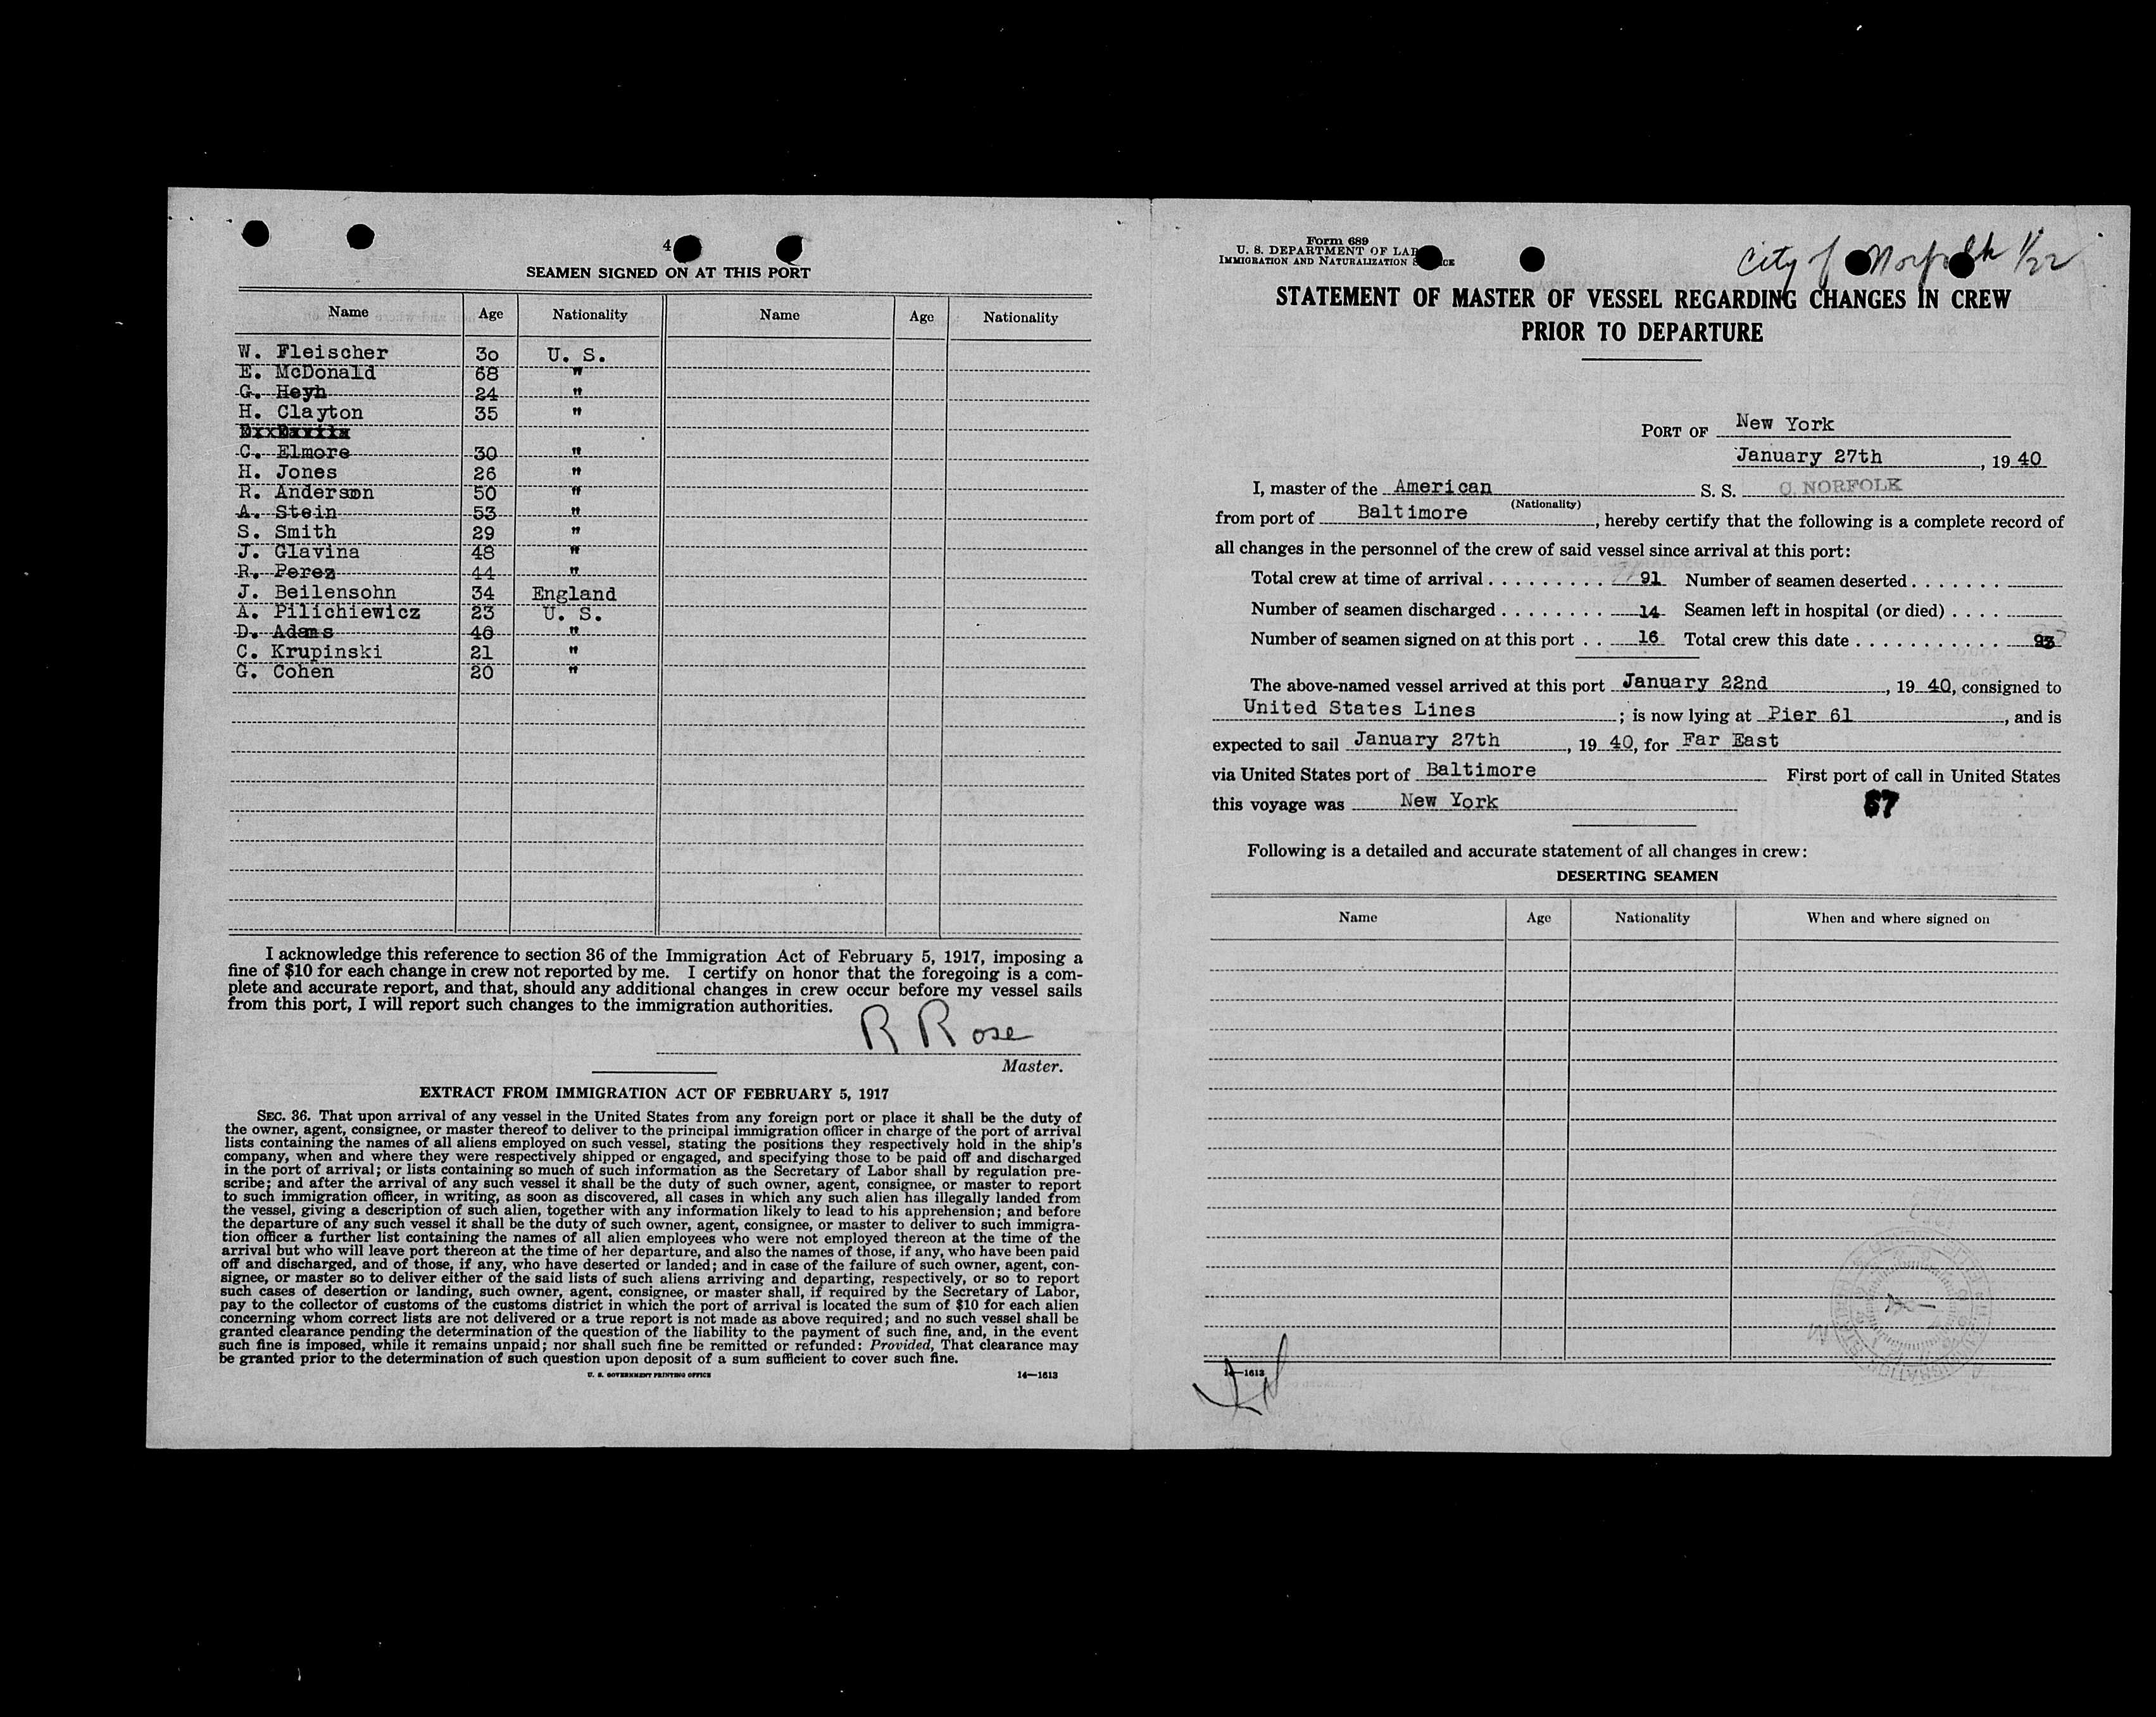 4
SEAMEN SIGNED ON AT THIS PORT
Name Age Nationality Name Age Nationality
W. Fleischer 30 U. S.
E. McDonald 68 "
G. Heyh 24 "
H. Clayton 35 "
C. Elmore 30 "
H. Jones 26 "
R. Anderson 50 "
A. Stein 53 "
S. Smith 29 "
J. Glavina 48 "
R. Perez 44 "
J. Beilensohn 34 England
A. Pilichiewicz 23 U. S.
D. Adams 40 "
C. Krupinski 21 "
G. Cohen 20 "
I acknowledge this reference to section 36 of the Immigration Act of February 5, 1917, imposing a
fine of $10 for each change in crew not reported by me. I certify on honor that the foregoing is a com-
plete and accurate report, and that, should any additional changes in crew occur before my vessel sails
from this port, I will report such changes to the immigration authorities.
R Rose
Master.
EXTRACT FROM IMMIGRATION ACT OF FEBRUARY 5, 1917
SEC. 36. That upon arrival of any vessel in the United States from any foreign port or place it shall be the duty of
the owner, agent, consignee, or master thereof to deliver to the principal immigration officer in charge of the port of arrival
lists containing the names of all aliens employed on such vessel, stating the positions they respectively hold in the ship's
company, when and where they were respectively shipped or engaged, and specifying those to be paid off and discharged
in the port of arrival; or lists containing so much of such information as the Secretary of Labor shall by regulation pre-
scribe; and after the arrival of any such vessel it shall be the duty of such owner, agent, consignee, or master to report
to such immigration officer, in writing, as soon as discovered, all cases in which any such alien has illegally landed from
the vessel, giving a description of such alien, together with any information likely to lead to his apprehension; and before
the departure of any such vessel it shall be the duty of such owner, agent, consignee, or master to deliver to such immigra-
tion officer a further list containing the names of all alien employees who were not employed thereon at the time of the
arrival but who will leave port thereon at the time of her departure, and also the names of those, if any, who have been paid
off and discharged, and of those, if any, who have deserted or landed; and in case of the failure of such owner, agent, con-
signee, or master so to deliver either of the said lists of such aliens arriving and departing, respectively, or so to report
such cases of desertion or landing, such owner, agent, consignee, or master shall, if required by the Secretary of Labor,
pay to the collector of customs of the customs district in which the port of arrival is located the sum of $10 for each alien
concerning whom correct lists are not delivered or a true report is not made as above required; and no such vessel shall be
granted clearance pending the determination of the question of the liability to the payment of such fine, and, in the event
such fine is imposed, while it remains unpaid; nor shall such fine be remitted or refunded: Provided, That clearance may
be granted prior to the determination of such question upon deposit of a sum sufficient to cover such fine.
U. S. GOVERNMENT PRINTING OFFICE 14—1613
Form 689
U. S. DEPARTMENT OF LAB
IMMIGRATION AND NATURALIZATION S ICE
City of Norfolk 1/22
STATEMENT OF MASTER OF VESSEL REGARDING CHANGES IN CREW
PRIOR TO DEPARTURE
PORT OF New York
January 27th, 1940
I, master of the American S. S. C. NORFOLK
(Nationality)
from port of Baltimore, hereby certify that the following is a complete record of
all changes in the personnel of the crew of said vessel since arrival at this port:
Total crew at time of arrival . . . . . . . . . 91 Number of seamen deserted . . . . . . .
Number of seamen discharged . . . . . . . . 14 Seamen left in hospital (or died) . . . .
Number of seamen signed on at this port . . 16 Total crew this date . . . . . . . . . . . 93
The above-named vessel arrived at this port January 22nd, 1940, consigned to
United States Lines; is now lying at Pier 61, and is
expected to sail January 27th, 1940, for Far East
via United States port of Baltimore First port of call in United States
this voyage was New York
67
Following is a detailed and accurate statement of all changes in crew:
DESERTING SEAMEN
Name Age Nationality When and where signed on
14—1613